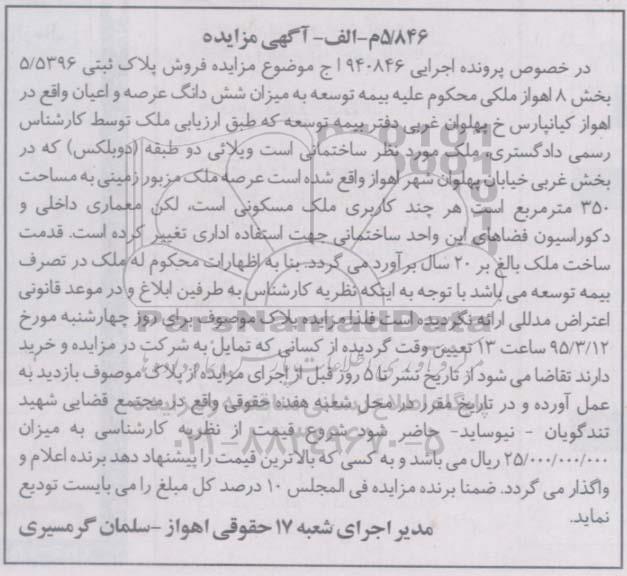 ۵/۸۴۶م-الف- آگهی مزایده
در خصوص پرونده اجرایی ۹۴۰۸۴۶ ا ج موضوع مزایده فروش پلاک ثبتی ۵/۵۳۹۶
بخش ۸ اهواز ملکی محکوم علیه بیمه توسعه به میزان شش دانگ عرصه و اعیان واقع در
اهواز کیانپارس خ پهلوان غربی دفتر بیمه توسعه که طبق ارزیابی ملک توسط کارشناس
رسمی دادگستری، ملک مورد نظر ساختمانی است ویلائی دو طبقه (دوبلکس) که در
بخش غربی خیابان پهلوان شهر اهواز واقع شده است عرصه ملک مزبور زمینی به مساحت
۳۵۰ مترمربع است هر چند کاربری ملک مسکونی است، لکن معماری داخلی و
دکوراسیون فضاهای این واحد ساختمانی جهت استفاده اداری تغییر کرده است. قدمت
ساخت ملک بالغ بر ۲۰ سال برآورد می گردد. بنا به اظهارات محکوم له ملک در تصرف
بیمه توسعه می باشد با توجه به اینکه نظریه کارشناس به طرفین ابلاغ و در موعد قانونی
اعتراض مدللی ارائه نگردیده است فلذا مزایده پلاک موصوف برای روز چهارشنبه مورخ
۹۵/۳/۱۲ ساعت ۱۳ تعیین وقت گردیده از کسانی که تمایل به شرکت در مزایده و خرید
دارند تقاضا می شود از تاریخ نشر تا ۵ روز قبل از اجرای مزایده از پلاک موصوف بازدید به
عمل آورده و در تاریخ مقرر در محل شعبه هفده حقوقی واقع در مجتمع قضایی شهید
تندگویان - نیوساید- حاضر شود شروع قیمت از نظریه کارشناسی به میزان
۲۵/۰۰۰/۰۰۰/۰۰۰ ریال می باشد و به کسی که بالاترین قیمت را پیشنهاد دهد برنده اعلام و
واگذار می گردد. ضمنا برنده مزایده فی المجلس ۱۰ درصد کل مبلغ را می بایست تودیع
نماید.
مدیر اجرای شعبه ۱۷ حقوقی اهواز -سلمان گرمسیری
ParsNamadData
۰۲۱-۸۸۳۴۹۶۷۰-۵